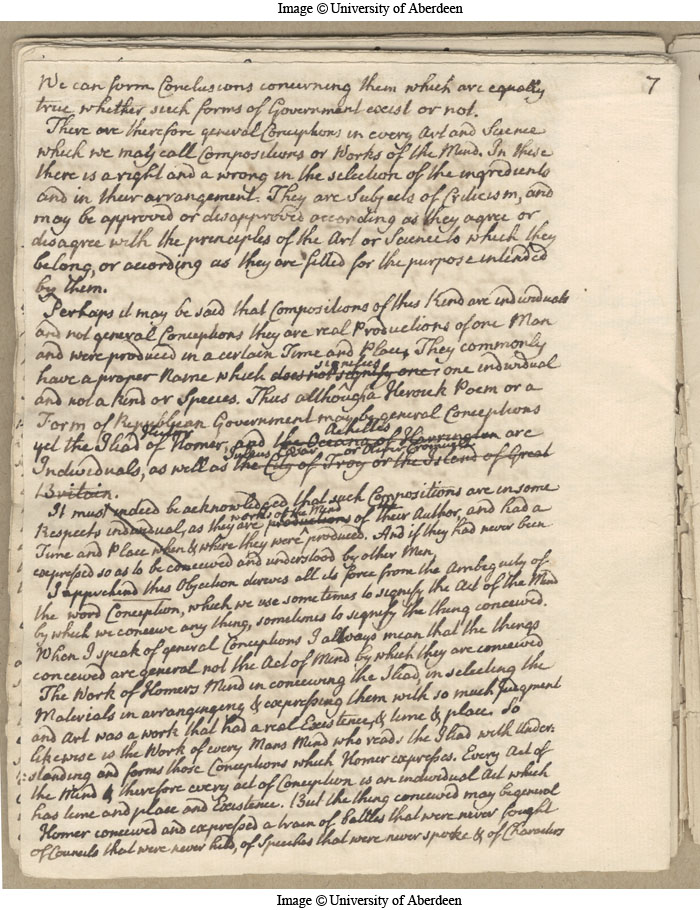 Image © University of Aberdeen
7
We can form Conclusions concerning them which are equally
true whether such forms of Government exist or not.
There are therefore general Conceptions in every Art and Science
which we may call Compositions or Works of the Mind. In these
there is a right and a wrong in the selection of the ingredients
and in their arrangement. They are Subjects of Criticism, and
may be approved or disapproved according as they agree or
disagree with the principles of the Art or Science to which they
belong, or according as they are fitted for the purpose intended
by them.
Perhaps it may be said that Compositions of this Kind are individuals
and not general Conceptions they are real Productions of one Man
and were produced in a certain Time and Place, They commonly
signifies
have a proper Name which does not signify one one individual
and not a Kind or Species. Thus although a Heroick Poem or a
Form of Republican Government may be general Conceptions
Achilles
yet the Iliad of Homer, and the Oceana of Harrington are
Julius Cesar or Oliver Cromwell
Individuals, as well as the City of Troy or the Island of Great
Britain.
It must indeed be acknowledged that such Compositions are in some
works of the Mind
Respects individual, as they are productions of their Author, and had a
Time and Place when & where they were produced. And if they had never been
expressed so as to be conceived and understood by other Men
I apprehend this Objection derives all its force from the Ambiguity of
the word Conception, which we use sometimes to signify the Act of the Mind
by which we conceive any thing, sometimes to signify the thing conceived.
When I speak of general Conceptions I always mean that the things
conceived are general not the Act of Mind by which they are conceived
The Work of Homers Mind in conceiving the Iliad, in selecting the
Materials in arranginging & expressing them with so much Judgment
and Art was a work that had a real Existence, & time & place. So
likewise is the Work of every Mans Mind who reads the Iliad with Under:
:standing and forms those Conceptions which Homer expresses. Every Act of
the Mind & therefore every act of Conception is an individual Act which
has time and place and Existence. But the thing conceived may be general
Homer conceived and expressed a train of battles that were never fought
of Councils that were never held, of Speeches that were never spoke & of Characters
Image © University of Aberdeen